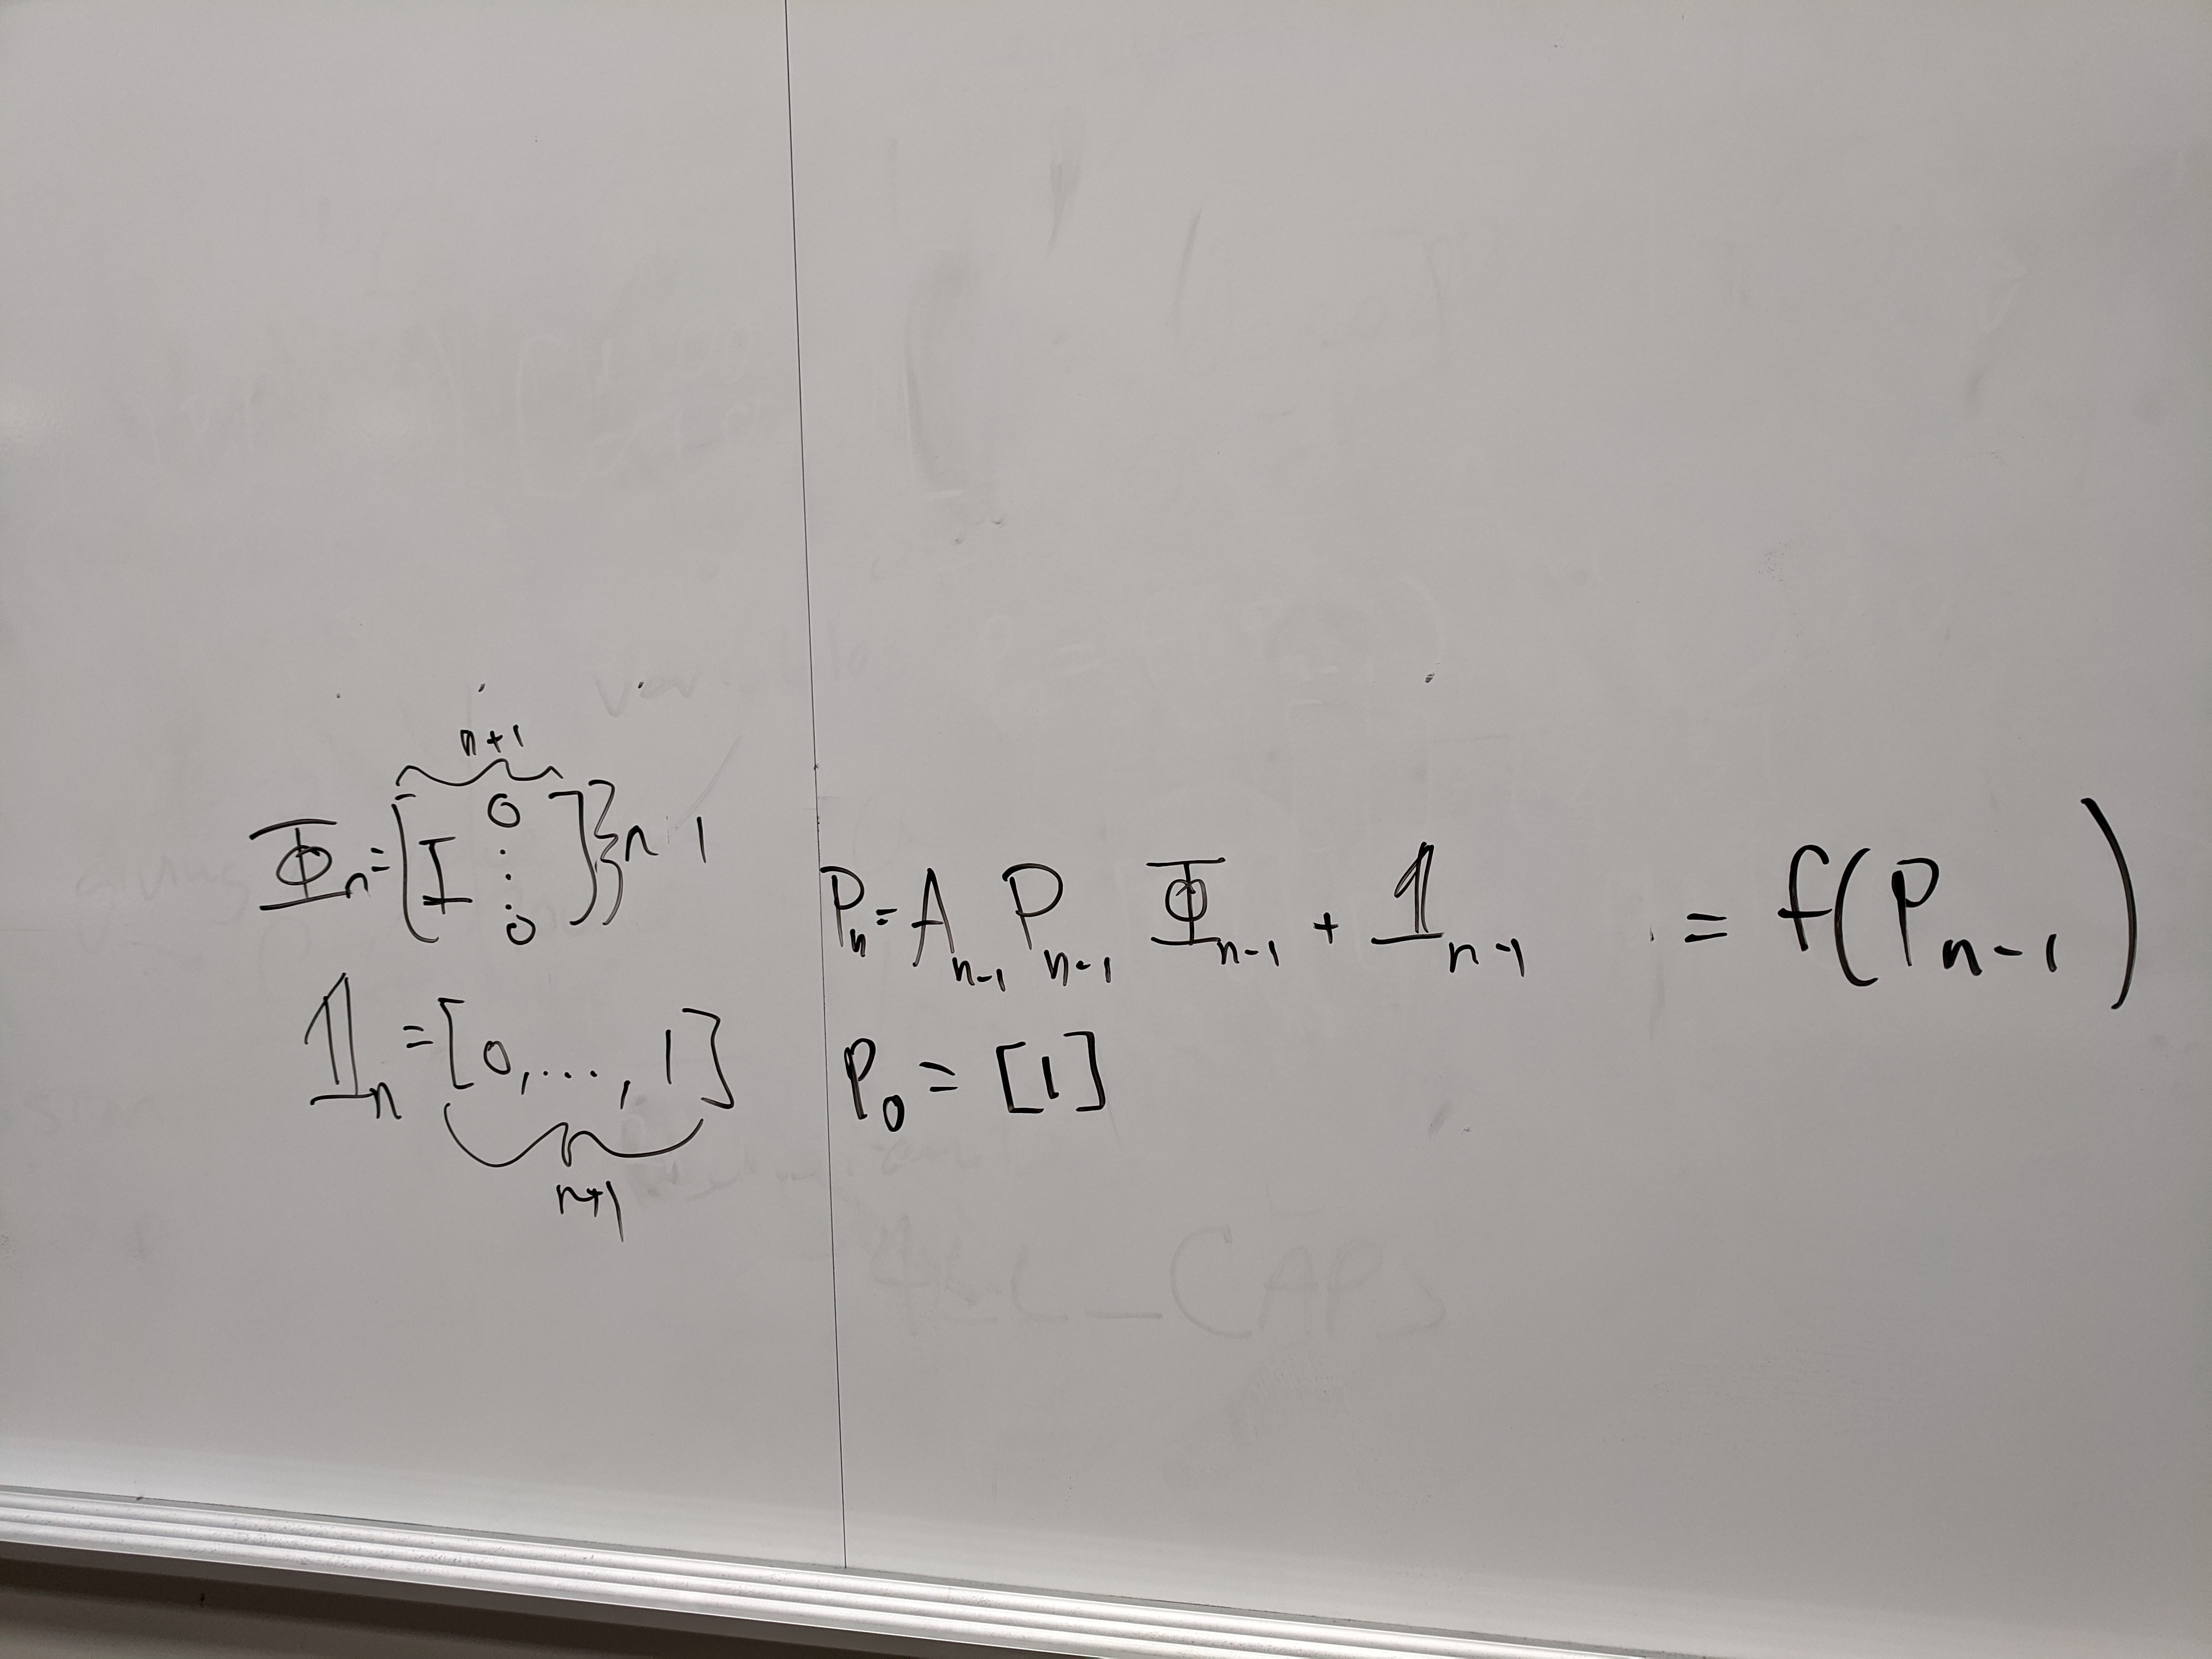 n+1
Φₙ = [I 0 ⋮ 0] } n 1
𝟙ₙ = [0, ..., 1]
n+1
Pₙ = Aₙ₋₁ Pₙ₋₁ Φₙ₋₁ + 𝟙ₙ₋₁ = f(Pₙ₋₁)
P₀ = [1]
ALL_CAPS